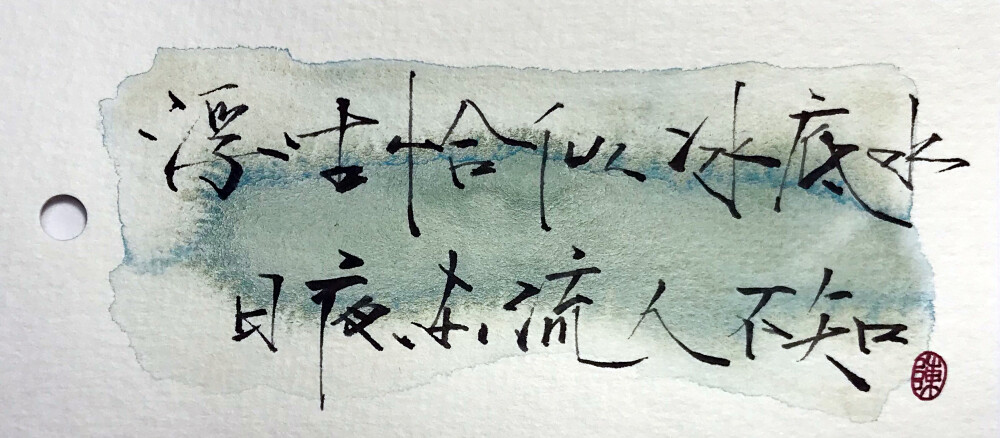 浮世恰似冰底水
日夜东流人不知
陳